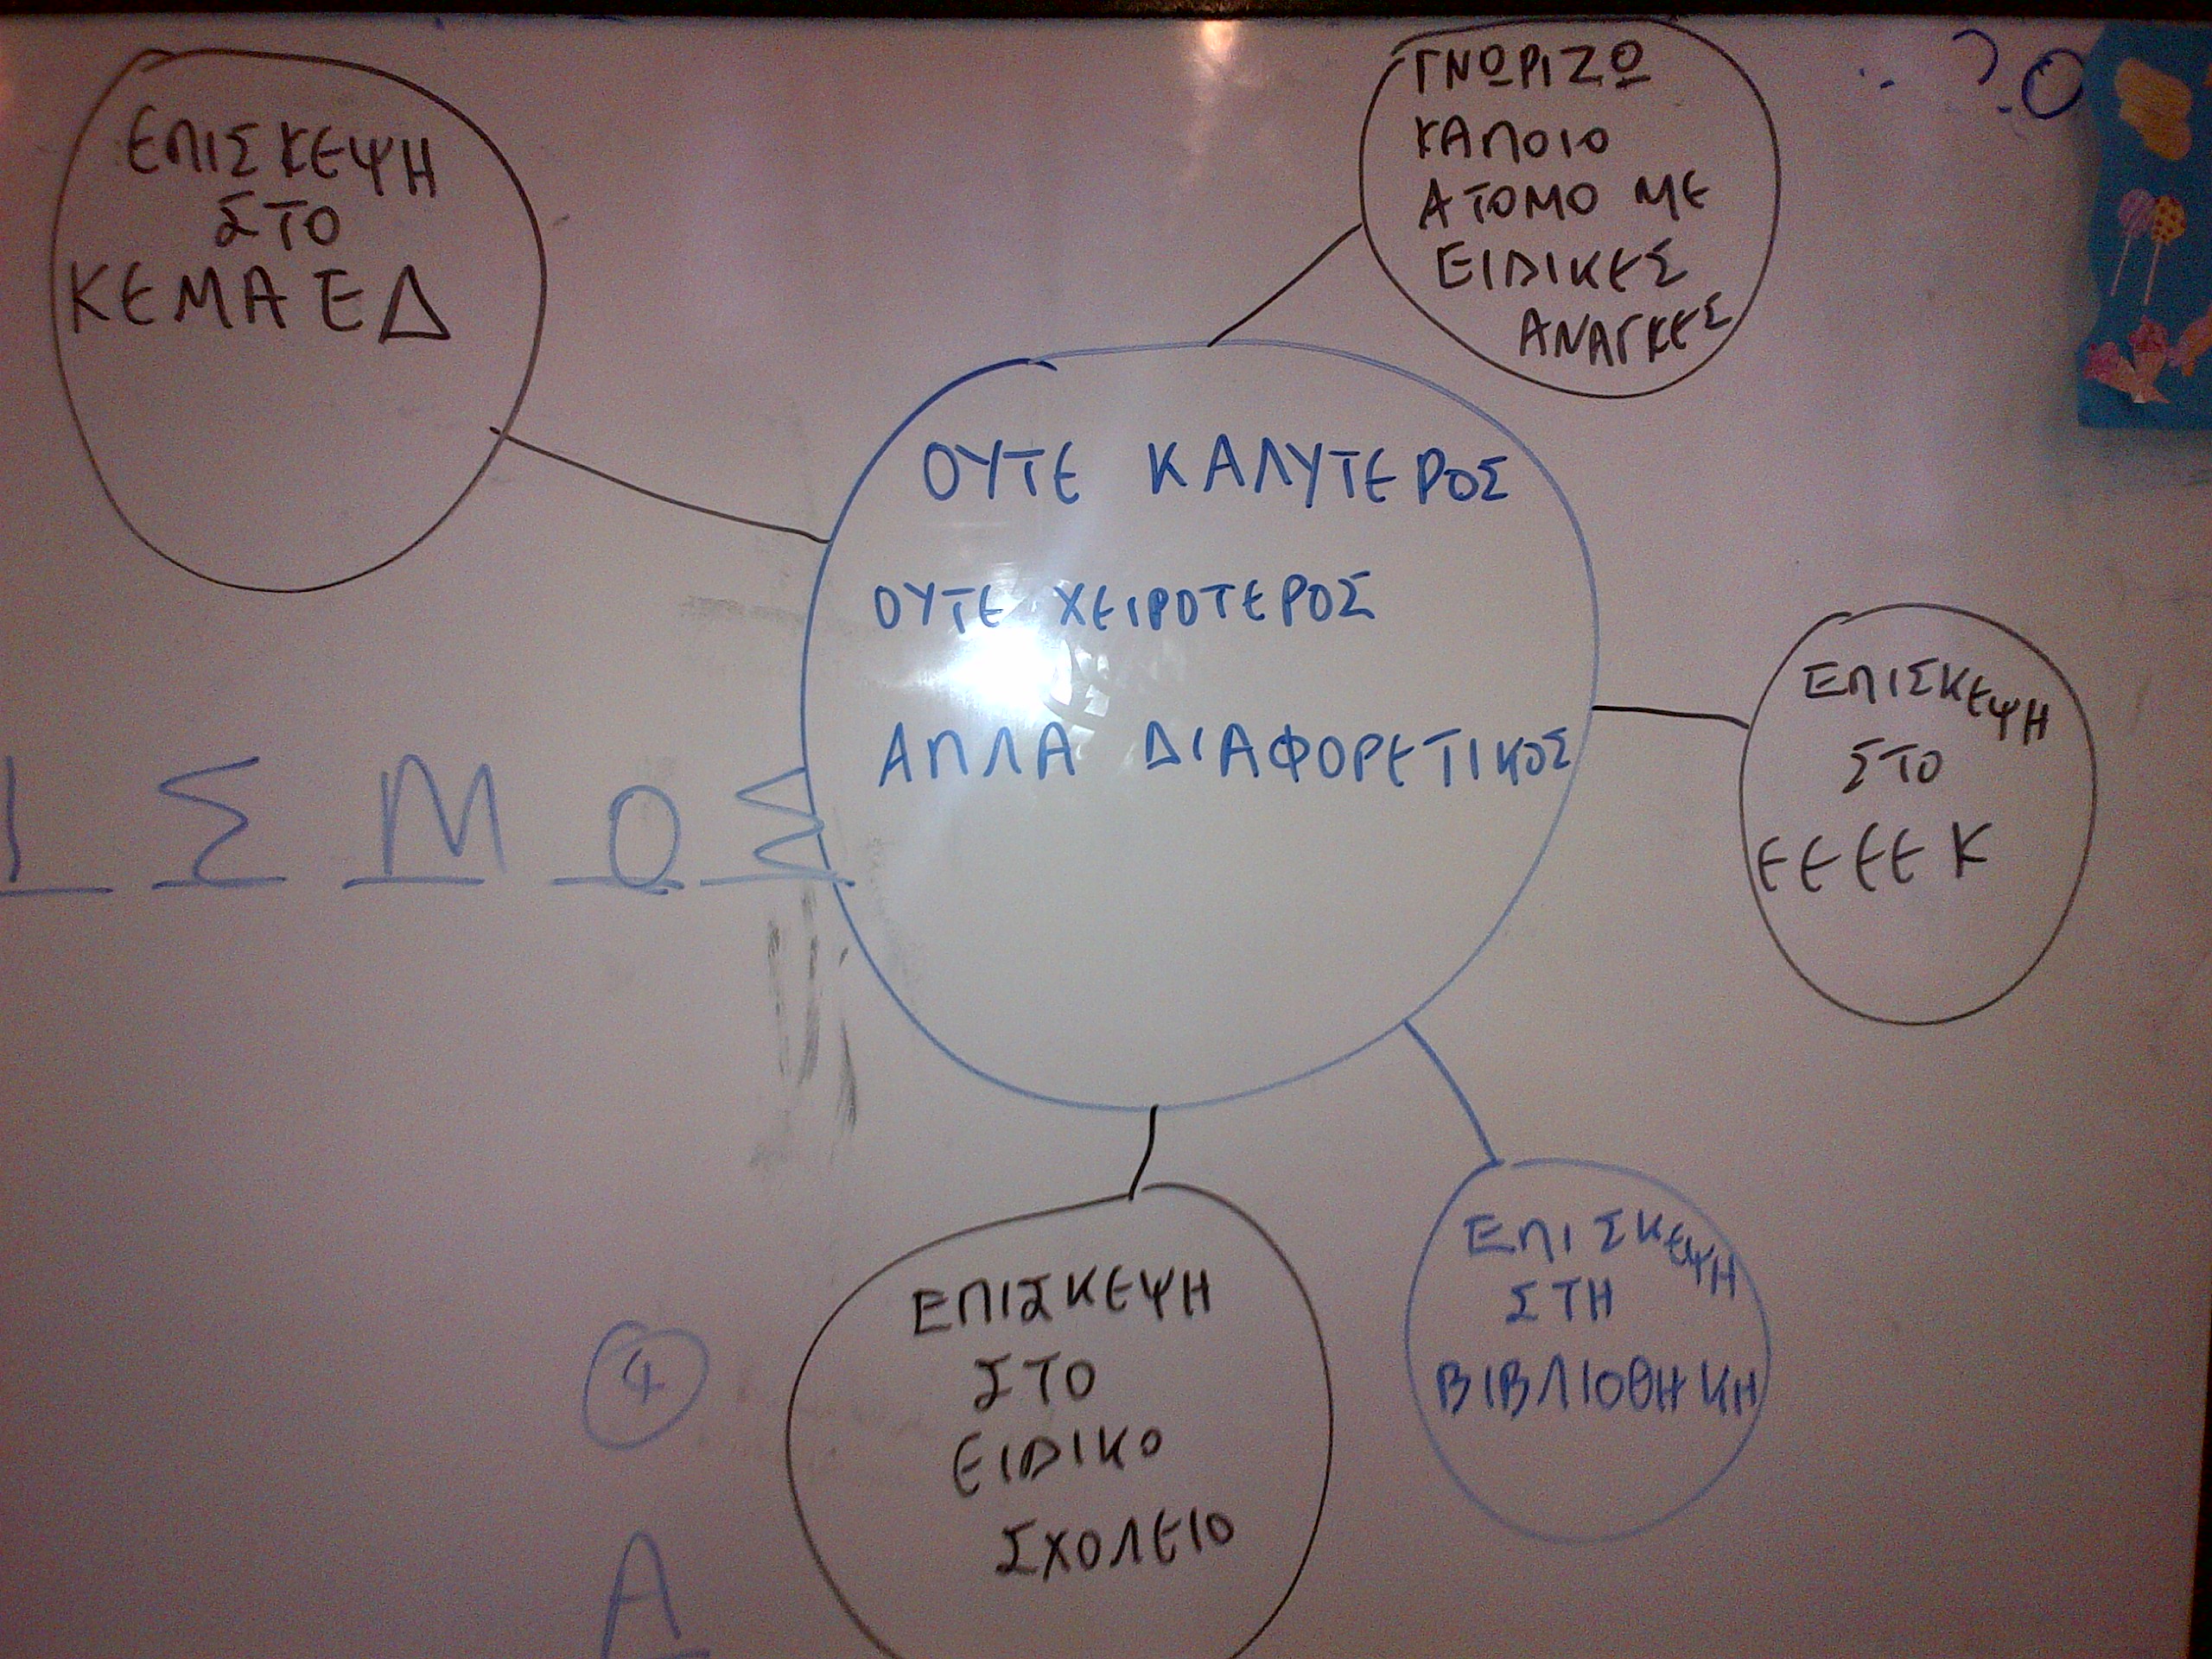 ΕΠΙΣΚΕΨΗ
ΣΤΟ
ΚΕΜΑΕΔ
ΓΝΩΡΙΖΩ
ΚΑΠΟΙΟ
ΑΤΟΜΟ ΜΕ
ΕΙΔΙΚΕΣ
ΑΝΑΓΚΕΣ
ΟΥΤΕ ΚΑΛΥΤΕΡΟΣ
ΟΥΤΕ ΧΕΙΡΟΤΕΡΟΣ
ΑΠΛΑ ΔΙΑΦΟΡΕΤΙΚΟΣ
ΕΠΙΣΚΕΨΗ
ΣΤΟ
ΕΕΕΕΚ
ΙΣΜΟΣ
ΕΠΙΣΚΕΨΗ
ΣΤΗ
ΒΙΒΛΙΟΘΗΚΗ
ΕΠΙΣΚΕΨΗ
ΣΤΟ
ΕΙΔΙΚΟ
ΣΧΟΛΕΙΟ
Α